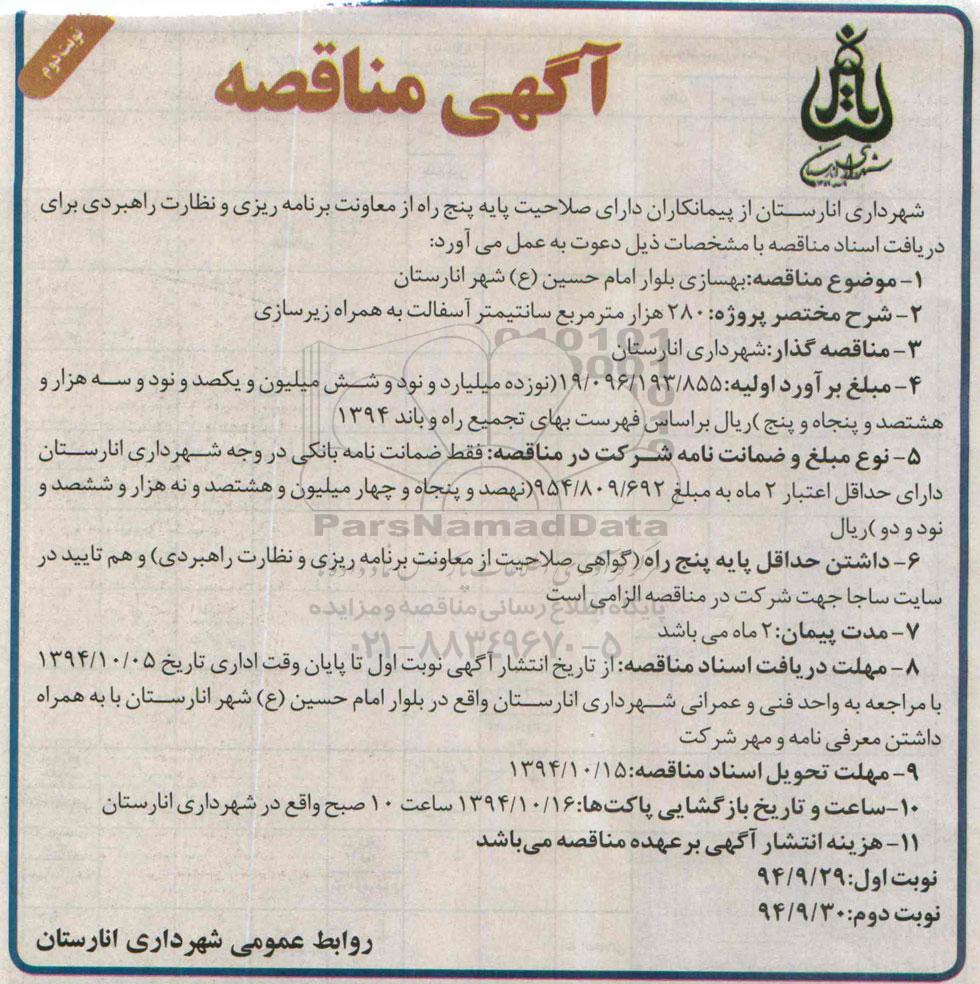 نوبت دوم
آگهی مناقصه
شهرداری انارستان
شهرداری انارستان از پیمانکاران دارای صلاحیت پایه پنج راه از معاونت برنامه ریزی و نظارت راهبردی برای
دریافت اسناد مناقصه با مشخصات ذیل دعوت به عمل می آورد:
۱- موضوع مناقصه:بهسازی بلوار امام حسین (ع) شهر انارستان
۲- شرح مختصر پروژه: ۲۸۰ هزار مترمربع سانتیمتر آسفالت به همراه زیرسازی
۳- مناقصه گذار:شهرداری انارستان
۴- مبلغ برآورد اولیه:۱۹/۰۹۶/۱۹۳/۸۵۵(نوزده میلیارد و نود و شش میلیون و یکصد و نود و سه هزار و
هشتصد و پنجاه و پنج )ریال براساس فهرست بهای تجمیع راه و باند ۱۳۹۴
۵- نوع مبلغ و ضمانت نامه شرکت در مناقصه: فقط ضمانت نامه بانکی در وجه شهرداری انارستان
دارای حداقل اعتبار ۲ ماه به مبلغ ۹۵۴/۸۰۹/۶۹۲(نهصد و پنجاه و چهار میلیون و هشتصد و نه هزار و ششصد و
نود و دو )ریال
ParsNamadData
۶- داشتن حداقل پایه پنج راه (گواهی صلاحیت از معاونت برنامه ریزی و نظارت راهبردی) و هم تایید در
سایت ساجا جهت شرکت در مناقصه الزامی است
پایگاه اطلاع رسانی مناقصه و مزایده
۷- مدت پیمان: ۲ ماه می باشد
۰۲۱-۸۸۳۴۹۶۷۰-۵
۸- مهلت دریافت اسناد مناقصه: از تاریخ انتشار آگهی نوبت اول تا پایان وقت اداری تاریخ ۱۳۹۴/۱۰/۰۵
با مراجعه به واحد فنی و عمرانی شهرداری انارستان واقع در بلوار امام حسین (ع) شهر انارستان با به همراه
داشتن معرفی نامه و مهر شرکت
۹- مهلت تحویل اسناد مناقصه:۱۳۹۴/۱۰/۱۵
۱۰-ساعت و تاریخ بازگشایی پاکت‌ها:۱۳۹۴/۱۰/۱۶ ساعت ۱۰ صبح واقع در شهرداری انارستان
۱۱- هزینه انتشار آگهی برعهده مناقصه می‌باشد
نوبت اول:۹۴/۹/۲۹
نوبت دوم:۹۴/۹/۳۰
روابط عمومی شهرداری انارستان